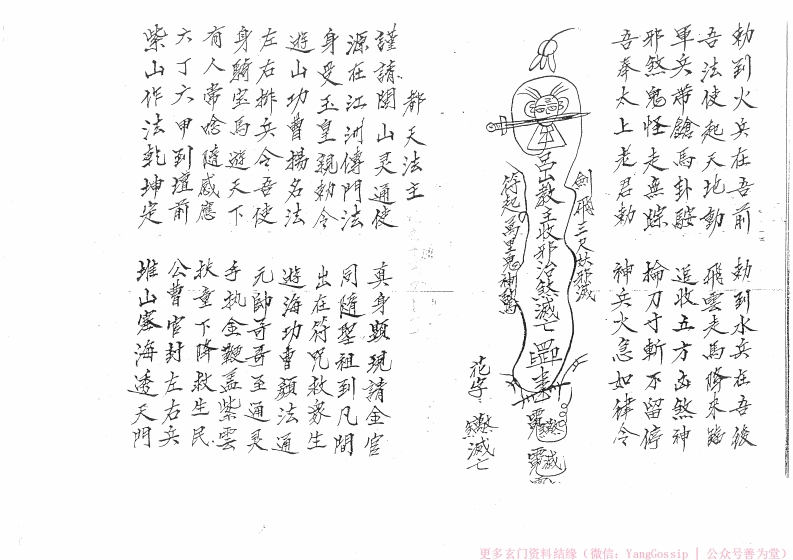 勅到火兵在吾前 勅到水兵在吾後
吾法使起天地動 飛雲走馬降来臨
軍兵帶鎗馬卦鞍 追收五方凶煞神
邪煞鬼怪走無踪 輪刀寸斬不留停
吾奉太上老君勅 神兵火急如律令
劍飛三尺妖邪滅
呂山教主收邪治煞滅亡
符起萬里鬼神驚
花字 煞滅亡
都天法主
謹請閭山灵通使 真身顕現請金官
源在江洲傳門法 同隨聖祖到凡間
身受玉皇親勅令 出在符咒救衆生
遊山功曹揚名法 遊海功曹顔法通
左右排兵令吾使 元帥哥哥至通灵
身騎宝馬遊天下 手执金鞭盖紫雲
有人常唸隨感應 扶童下降救生民
六丁六甲到壇前 公曹官封左右兵
紫山作法乾坤定 堆山塞海透天門
更多玄门资料结缘（微信：YangGossip | 公众号善为堂）